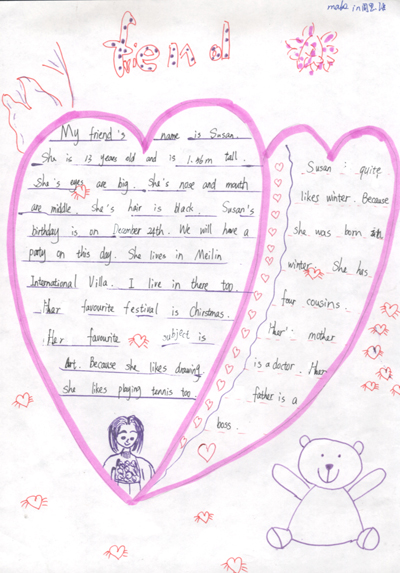 make in
fiend
My friend's name is Susan.
She is 13 years old and is 1.46m tall.
She's eyes are big. She's nose and mouth
are middle. She's hair is black. Susan's
birthday is on December 24th. We will have a
party on this day. She lives in Meilin
International Villa. I live in there too
Her favourite festival is Chirstmas.
Her favourite subject is
Art. Because she likes drawing.
she likes playing tennis too.
Susan quite
likes winter. Because
she was born in
winter. She has
four cousins.
Her mother
is a doctor. Her
father is a
boss.